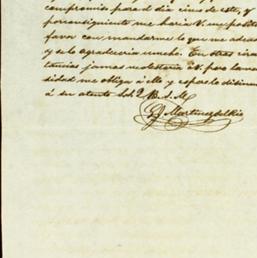 compromiso para el dia cinco de este, y
por consiguiente me haria V. un
favor con mandarme lo que me adeu
y se lo agradeceria mucho. En otras circ
tancias jamas molestaria á V. pero la ne
sidad me obliga á ello y espero lo
á su atento S.S. Q. B. S. M.
Martinez del Rio